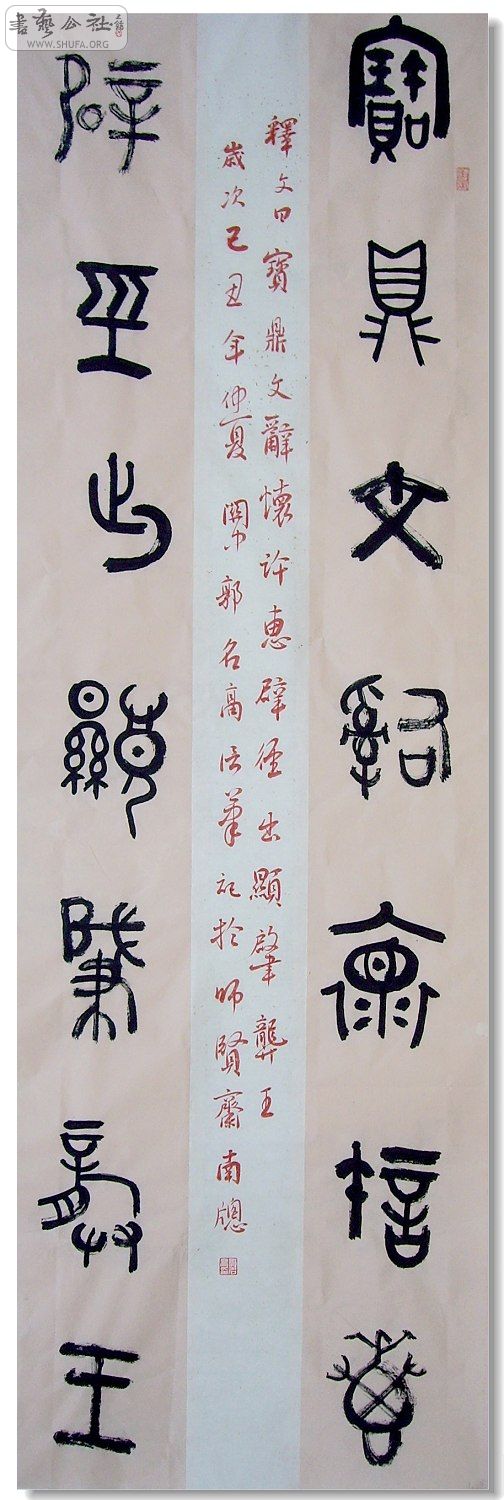 書藝公社
WWW.SHUFA.ORG
寶鼎文辭懷許惠
釋文曰寶鼎文辭懷許惠辟徑出顯肇龔王
歲次己丑年仲夏關中郭名高信筆記於師賢齋南牕
辟巠出顯肇龔王